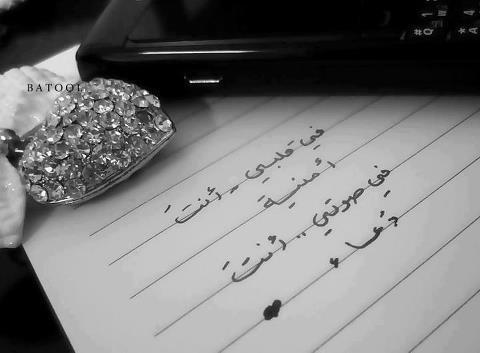 BATOOL
في قلبي .. أنتَ
أمنية
في صوتي .. أنتَ
دُعاء
#Q
*A